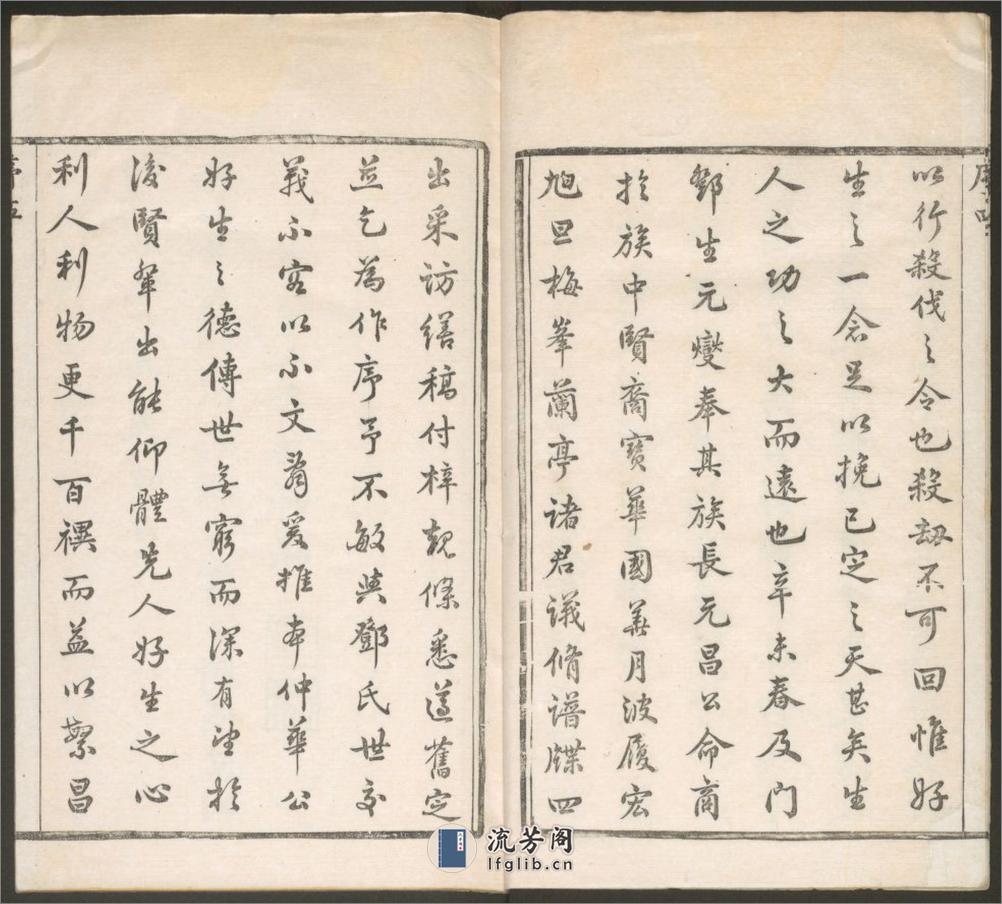 以行殺伐之令也殺劫不可回惟好
生之一念足以挽已定之天甚矣生
人之功之大而遠也辛未春及門
鄧生元燮奉其族長元昌公命商
於族中賢裔寶華國華月波履宏
旭旦梅峯蘭亭諸君議脩譜牒四
出采訪繕稿付梓規條悉遵舊定
並乞為作序予不敏與鄧氏世交
義不容以不文辭爰推本仲華公
好生之德傳世無窮而深有望於
後賢輩出能仰體先人好生之心
利人利物更千百禩而益以繁昌
序五
流芳阁
lfglib.cn